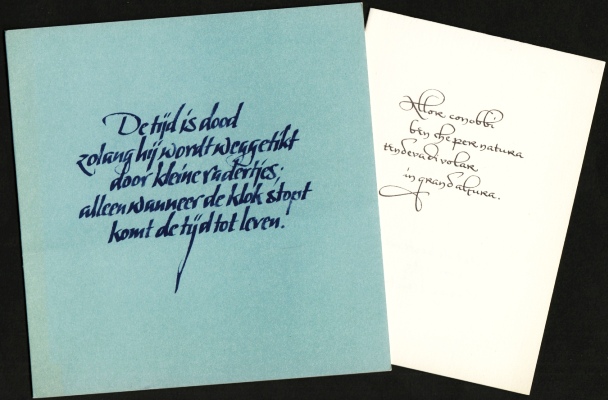 De tijd is dood
zolang hij wordt weggetikt
door kleine radertjes;
alleen wanneer de klok stopt
komt de tijd tot leven.
Allor conobbi
ben che per natura
tendeva di volar
in grand'altura.